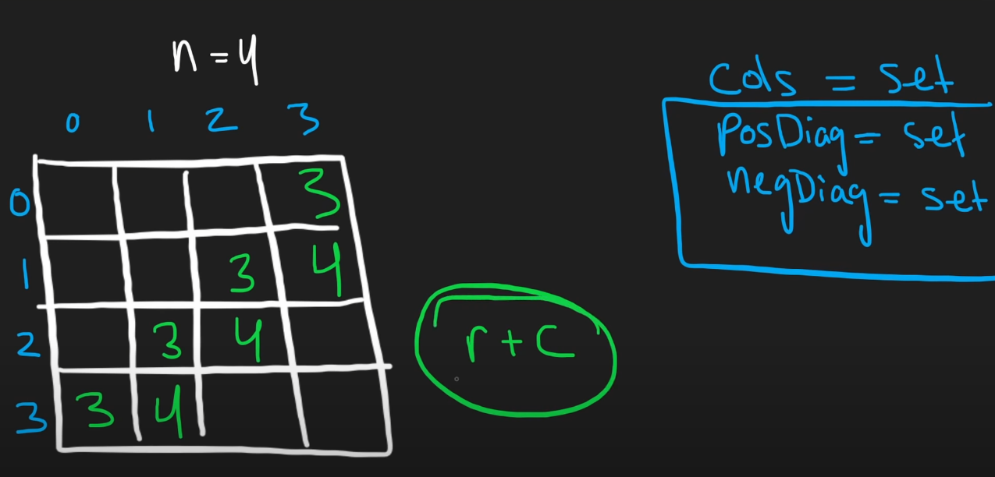 n = 4
0 1 2 3
0 3
1 3 4
2 3 4
3 3 4
r + c
Cols = set
PosDiag = set
negDiag = set